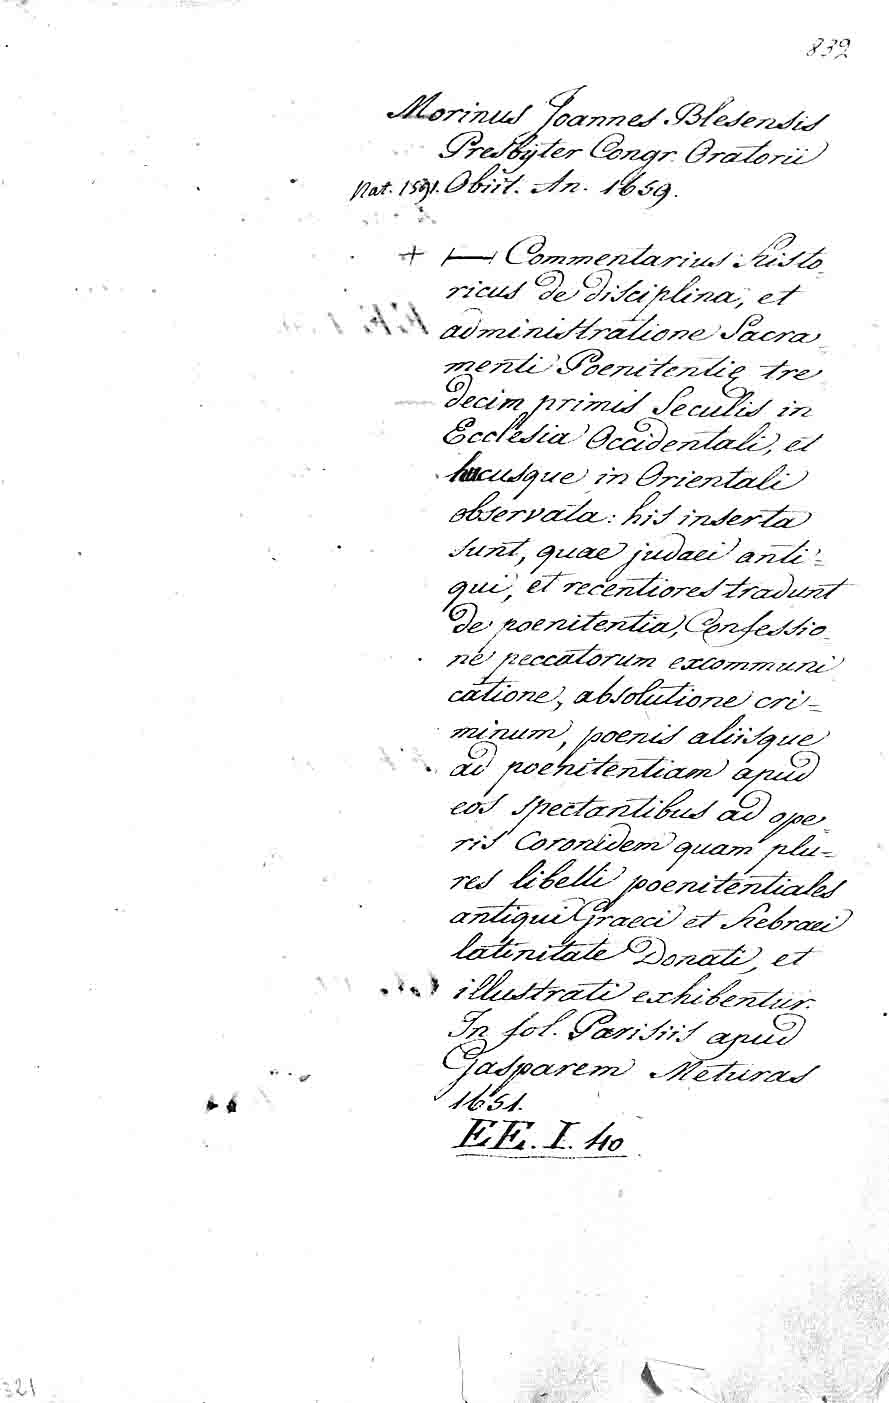 832
Morinus Joannes Blesensis
Presbyter Congr. Oratorii
Nat. 1591. Obiit. An. 1659.
+ Commentarius Histo-
ricus de disciplina, et
administratione Sacra-
menti Poenitentię tre
decim primis Seculis in
Ecclesia Occidentali, et
hucusque in Orientali
observata: his inserta
sunt, quae judaei anti=
qui, et recentiores tradunt
de poenitentia, Confessio-
ne peccatorum excommuni
catione, absolutione cri=
minum, poenis aliisque
ad poenitentiam apud
eos spectantibus ad ope-
ris Coronidem quam plu=
res libelli poenitentiales
antiqui Graeci et Hebraei
latinitate Donati, et
illustrati exhibentur.
In fol. Parisiis apud
Gasparem Meturas
1651.
EE. I. 40
321